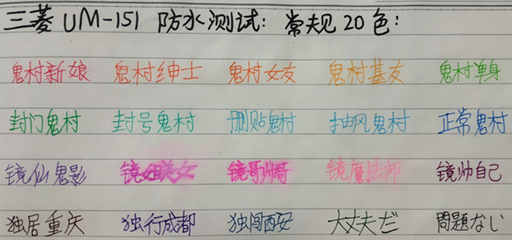 三菱 UM-151 防水测试: 常规20色:
鬼村新娘 鬼村绅士 鬼村女友 鬼村基友 鬼村单身
封门鬼村 封号鬼村 删贴鬼村 抽风鬼村 正常鬼村
镜仙鬼影 镜美女 镜哥帅哥 镜魔法师 镜帅自己
独居重庆 独行成都 独闯西安 大丈夫だ 問題なし